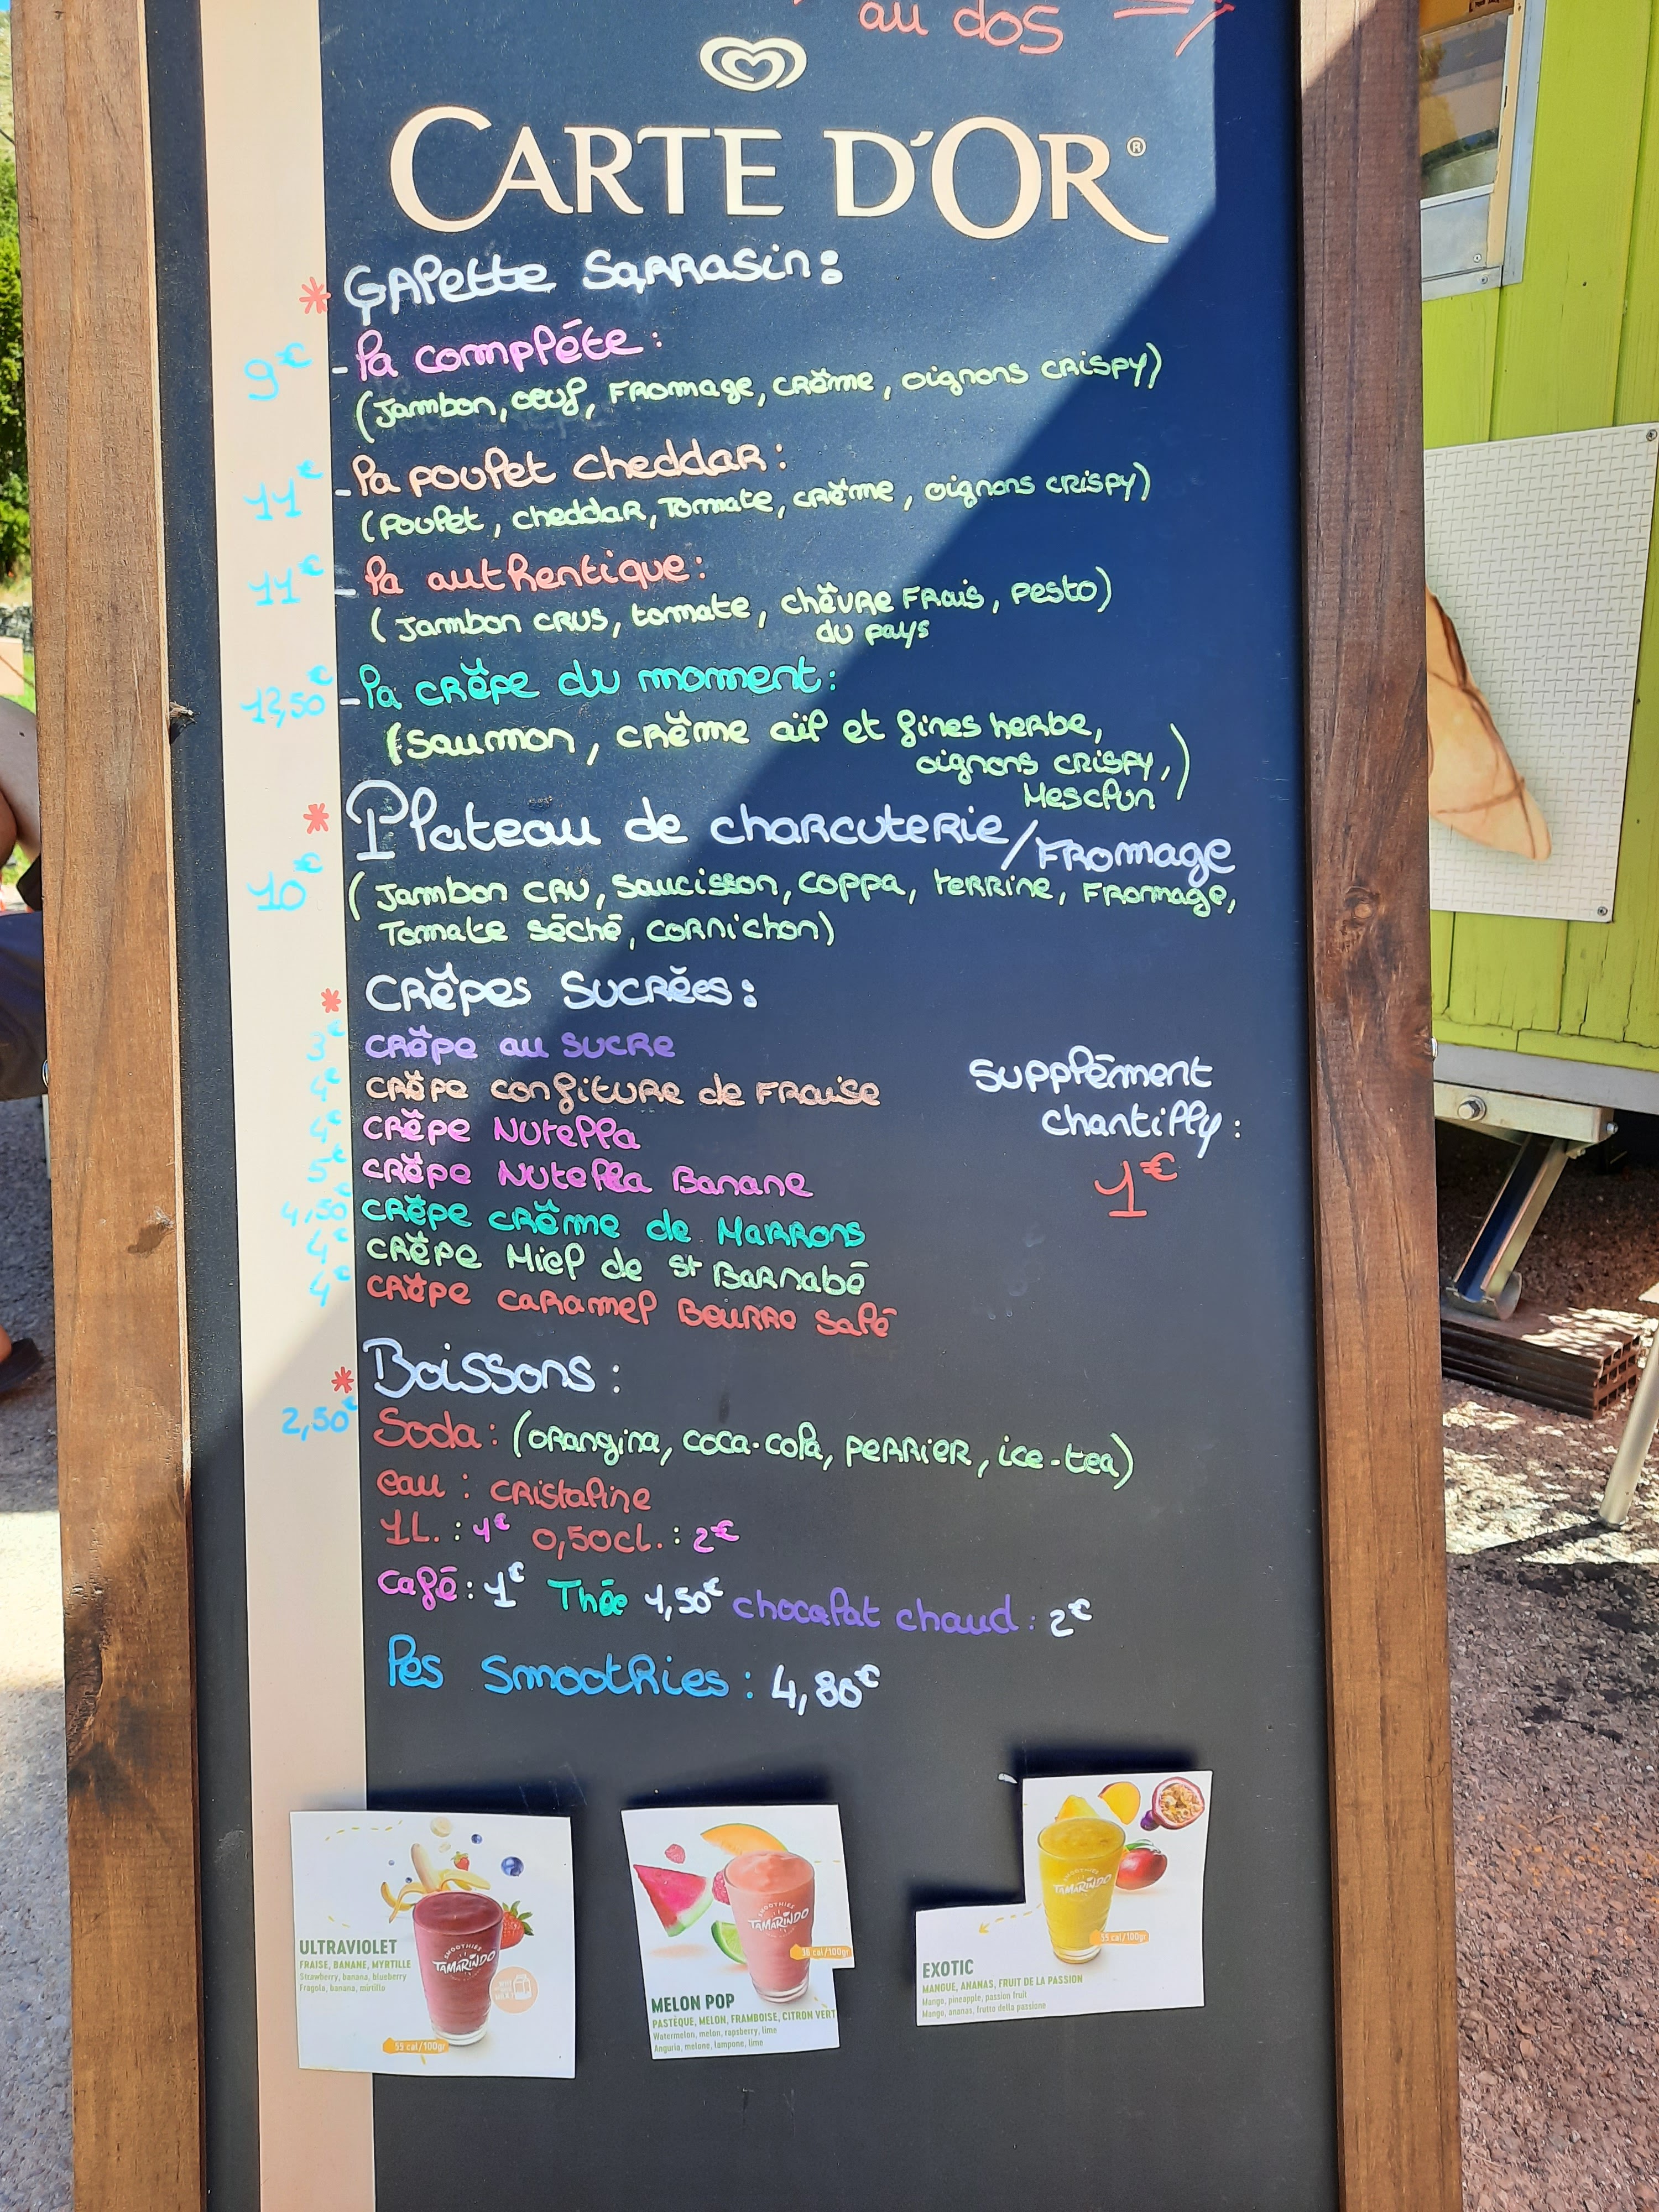 au dos
CARTE D'OR®
* Galette Sarrasin :
9€ - la complète :
(Jambon, oeuf, Fromage, crème, oignons crispy)
11€ - la poulet cheddar :
(Poulet, cheddar, Tomate, crème, oignons crispy)
11€ - la authentique :
(Jambon crus, tomate, chèvre Frais, pesto)
du pays
12,50€ - la crêpe du moment :
(Saumon, crème aïl et fines herbe,
oignons crispy,
Mesclun)
* Plateau de charcuterie/Fromage
10€ (Jambon cru, saucisson, coppa, terrine, Fromage,
Tomate séché, cornichon)
* Crêpes Sucrées :
3€ crêpe au sucre
4€ crêpe confiture de Fraise
4€ crêpe Nutella
5€ crêpe Nutella Banane
4,50€ crêpe crème de Marrons
4€ crêpe Miel de St Barnabé
4€ crêpe caramel Beurre salé
Supplément
chantilly :
1€
* Boissons :
2,50€ Soda : (orangina, coca-cola, perrier, ice-tea)
eau : cristaline
1L. : 4€ 0,50cl. : 2€
café : 1€ Thée 1,50€ chocolat chaud : 2€
les Smoothies : 4,80€
SMOOTHIES
TAMARINDO
ULTRAVIOLET
FRAISE, BANANE, MYRTILLE
Strawberry, banana, blueberry
Fragola, banana, mirtillo
55 cal/100gr
SMOOTHIES
TAMARINDO
36 cal/100gr
MELON POP
PASTÈQUE, MELON, FRAMBOISE, CITRON VERT
Watermelon, melon, rapsberry, lime
Anguria, melone, lampone, lime
SMOOTHIES
TAMARINDO
55 cal/100gr
EXOTIC
MANGUE, ANANAS, FRUIT DE LA PASSION
Mango, pineapple, passion fruit
Mango, ananas, frutto della passione